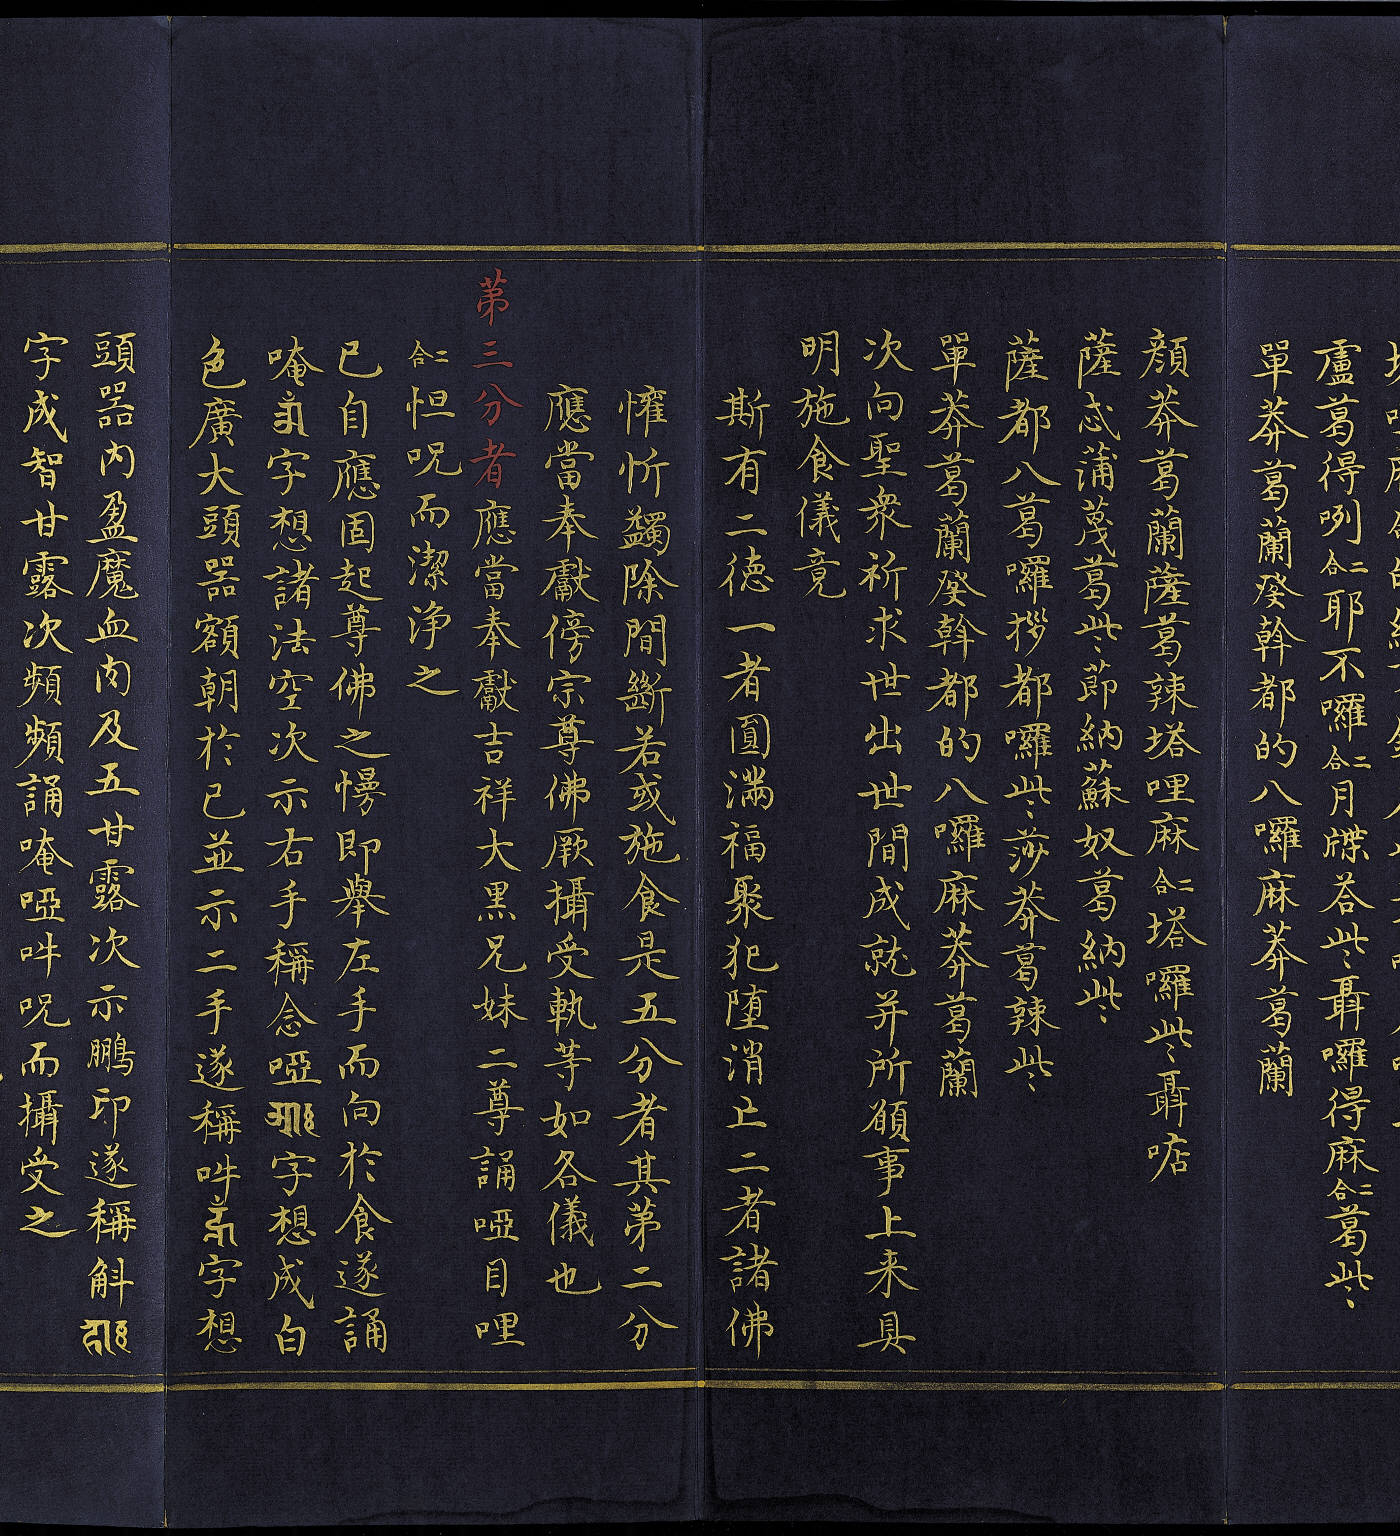 盧葛得咧二合耶不囉二合月牒荅些聶囉得麻二合葛些
單莽葛蘭癹斡都的八囉麻莽葛蘭
顏莽葛蘭薩葛辣塔哩麻二合塔囉些聶咭
薩忒蒲蔑葛些節納蘇奴葛納些
薩都八葛囉拶都囉些莎莽葛辣些
單莽葛蘭癹斡都的八囉麻莽葛蘭
次向聖衆祈求世出世間成就并所願事上来具
明施食儀竟
斯有二德一者圓滿福聚犯墮消亡二者諸佛
懽忻蠲除間斷若或施食是五分者其第二分
應當奉獻傍宗尊佛厥攝受軌等如各儀也
第三分者應當奉獻吉祥大黑兄妹二尊誦啞目哩
二合怛呪而潔净之
已自應固起尊佛之慢即舉左手而向於食遂誦
唵ॐ字想諸法空次示右手稱念啞字想成白
色廣大頭器額朝於已並示二手遂稱吽字想
頭器内盈魔血肉及五甘露次示鵬印遂稱斛
字成智甘露次頻頻誦唵啞吽呪而攝受之